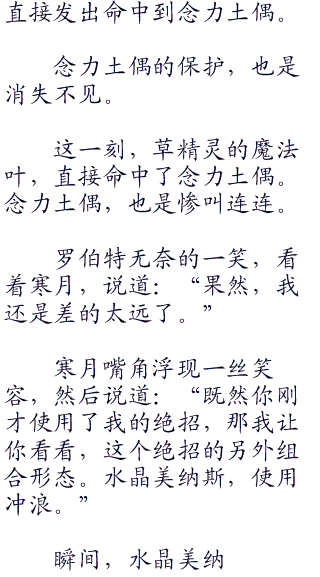 直接发出命中到念力土偶。
念力土偶的保护，也是
消失不见。
这一刻，草精灵的魔法
叶，直接命中了念力土偶。
念力土偶，也是惨叫连连。
罗伯特无奈的一笑，看
着寒月，说道：“果然，我
还是差的太远了。”
寒月嘴角浮现一丝笑
容，然后说道：“既然你刚
才使用了我的绝招，那我让
你看看，这个绝招的另外组
合形态。水晶美纳斯，使用
冲浪。”
瞬间，水晶美纳